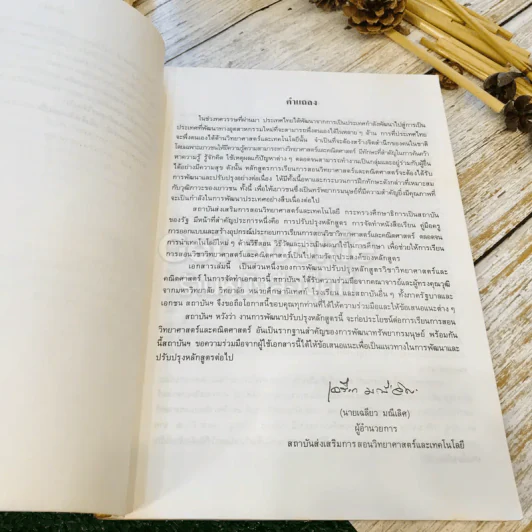 คำแถลง
ในช่วงทศวรรษที่ผ่านมา ประเทศไทยได้พัฒนาจากการเป็นประเทศกำลังพัฒนาไปสู่การเป็น
ประเทศที่พัฒนาทางอุตสาหกรรมใหม่ที่จะสามารถพึ่งตนเองได้ในหลาย ๆ ด้าน การที่ประเทศไทย
จะพึ่งตนเองได้ด้านวิทยาศาสตร์และเทคโนโลยีนั้น จำเป็นที่จะต้องสร้างจิตสำนึกของคนในชาติ
โดยเฉพาะเยาวชนให้มีความรู้ความสามารถทางวิทยาศาสตร์และคณิตศาสตร์ มีทักษะที่สำคัญในการค้นคว้า
หาความรู้ รู้จักคิด ใช้เหตุผลแก้ปัญหาต่าง ๆ ตลอดจนสามารถทำงานเป็นกลุ่มและอยู่ร่วมกับผู้อื่น
ได้อย่างมีความสุข ดังนั้น หลักสูตรการเรียนการสอนวิทยาศาสตร์และคณิตศาสตร์จะต้องได้รับ
การพัฒนาและปรับปรุงอย่างต่อเนื่อง ให้มีทั้งเนื้อหาและกระบวนการฝึกทักษะดังกล่าวที่เหมาะสม
กับวุฒิภาวะของเยาวชน ทั้งนี้ เพื่อให้เยาวชนซึ่งเป็นทรัพยากรมนุษย์ที่มีความสำคัญยิ่งมีคุณภาพที่
จะเป็นกำลังในการพัฒนาประเทศอย่างสืบเนื่องต่อไป
สถาบันส่งเสริมการสอนวิทยาศาสตร์และเทคโนโลยี กระทรวงศึกษาธิการเป็นสถาบัน
ของรัฐ มีหน้าที่สำคัญประการหนึ่งคือ การปรับปรุงหลักสูตร การจัดทำหนังสือเรียน คู่มือครู
การออกแบบและสร้างอุปกรณ์ประกอบการเรียนการสอนวิทยาศาสตร์และคณิตศาสตร์ ตลอดจน
การนำเทคโนโลยีใหม่ ๆ ด้านวิธีสอน วิธีวัดและประเมินผลมาใช้ในการศึกษา เพื่อช่วยให้การเรียน
การสอนวิชาวิทยาศาสตร์และคณิตศาสตร์เป็นไปตามวัตถุประสงค์ของหลักสูตร
เอกสารเล่มนี้ เป็นส่วนหนึ่งของการพัฒนาปรับปรุงหลักสูตรวิชาวิทยาศาสตร์และ
คณิตศาสตร์ ในการจัดทำเอกสารนี้ สถาบันฯ ได้รับความร่วมมือจากคณาจารย์และผู้ทรงคุณวุฒิ
จากมหาวิทยาลัย วิทยาลัย หน่วยศึกษานิเทศก์ โรงเรียน และสถาบันอื่น ๆ ทั้งภาครัฐบาลและ
เอกชน สถาบันฯ จึงขอถือโอกาสนี้ขอบคุณทุกท่านที่ได้ให้ความร่วมมือและให้ข้อเสนอแนะต่าง ๆ
สถาบันฯ หวังว่า งานการพัฒนาปรับปรุงหลักสูตรนี้ จะก่อประโยชน์ต่อการเรียนการสอน
วิทยาศาสตร์และคณิตศาสตร์ อันเป็นรากฐานสำคัญของการพัฒนาทรัพยากรมนุษย์ พร้อมกัน
นี้สถาบันฯ ขอความร่วมมือจากผู้ใช้เอกสารนี้ได้ให้ข้อเสนอแนะเพื่อเป็นแนวทางในการพัฒนาและ
ปรับปรุงหลักสูตรต่อไป
(นายเฉลียว มณีเลิศ)
ผู้อำนวยการ
สถาบันส่งเสริมการสอนวิทยาศาสตร์และเทคโนโลยี